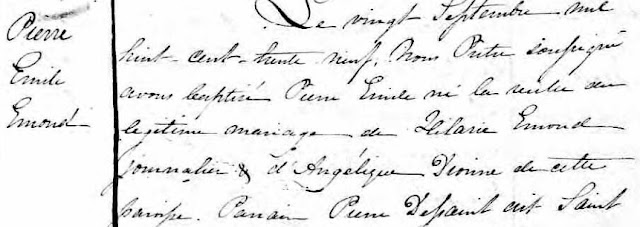 Pierre
Emile
Emond
Le vingt Septembre mil
huit-cent-trente neuf, Nous Prêtre soussigné
avons baptisé Pierre Emile né la veille du
légitime mariage de Hilarie Emond
journalier & d'Angélique Dionne de cette
paroisse. Parrain Pierre Dessaint dit Saint